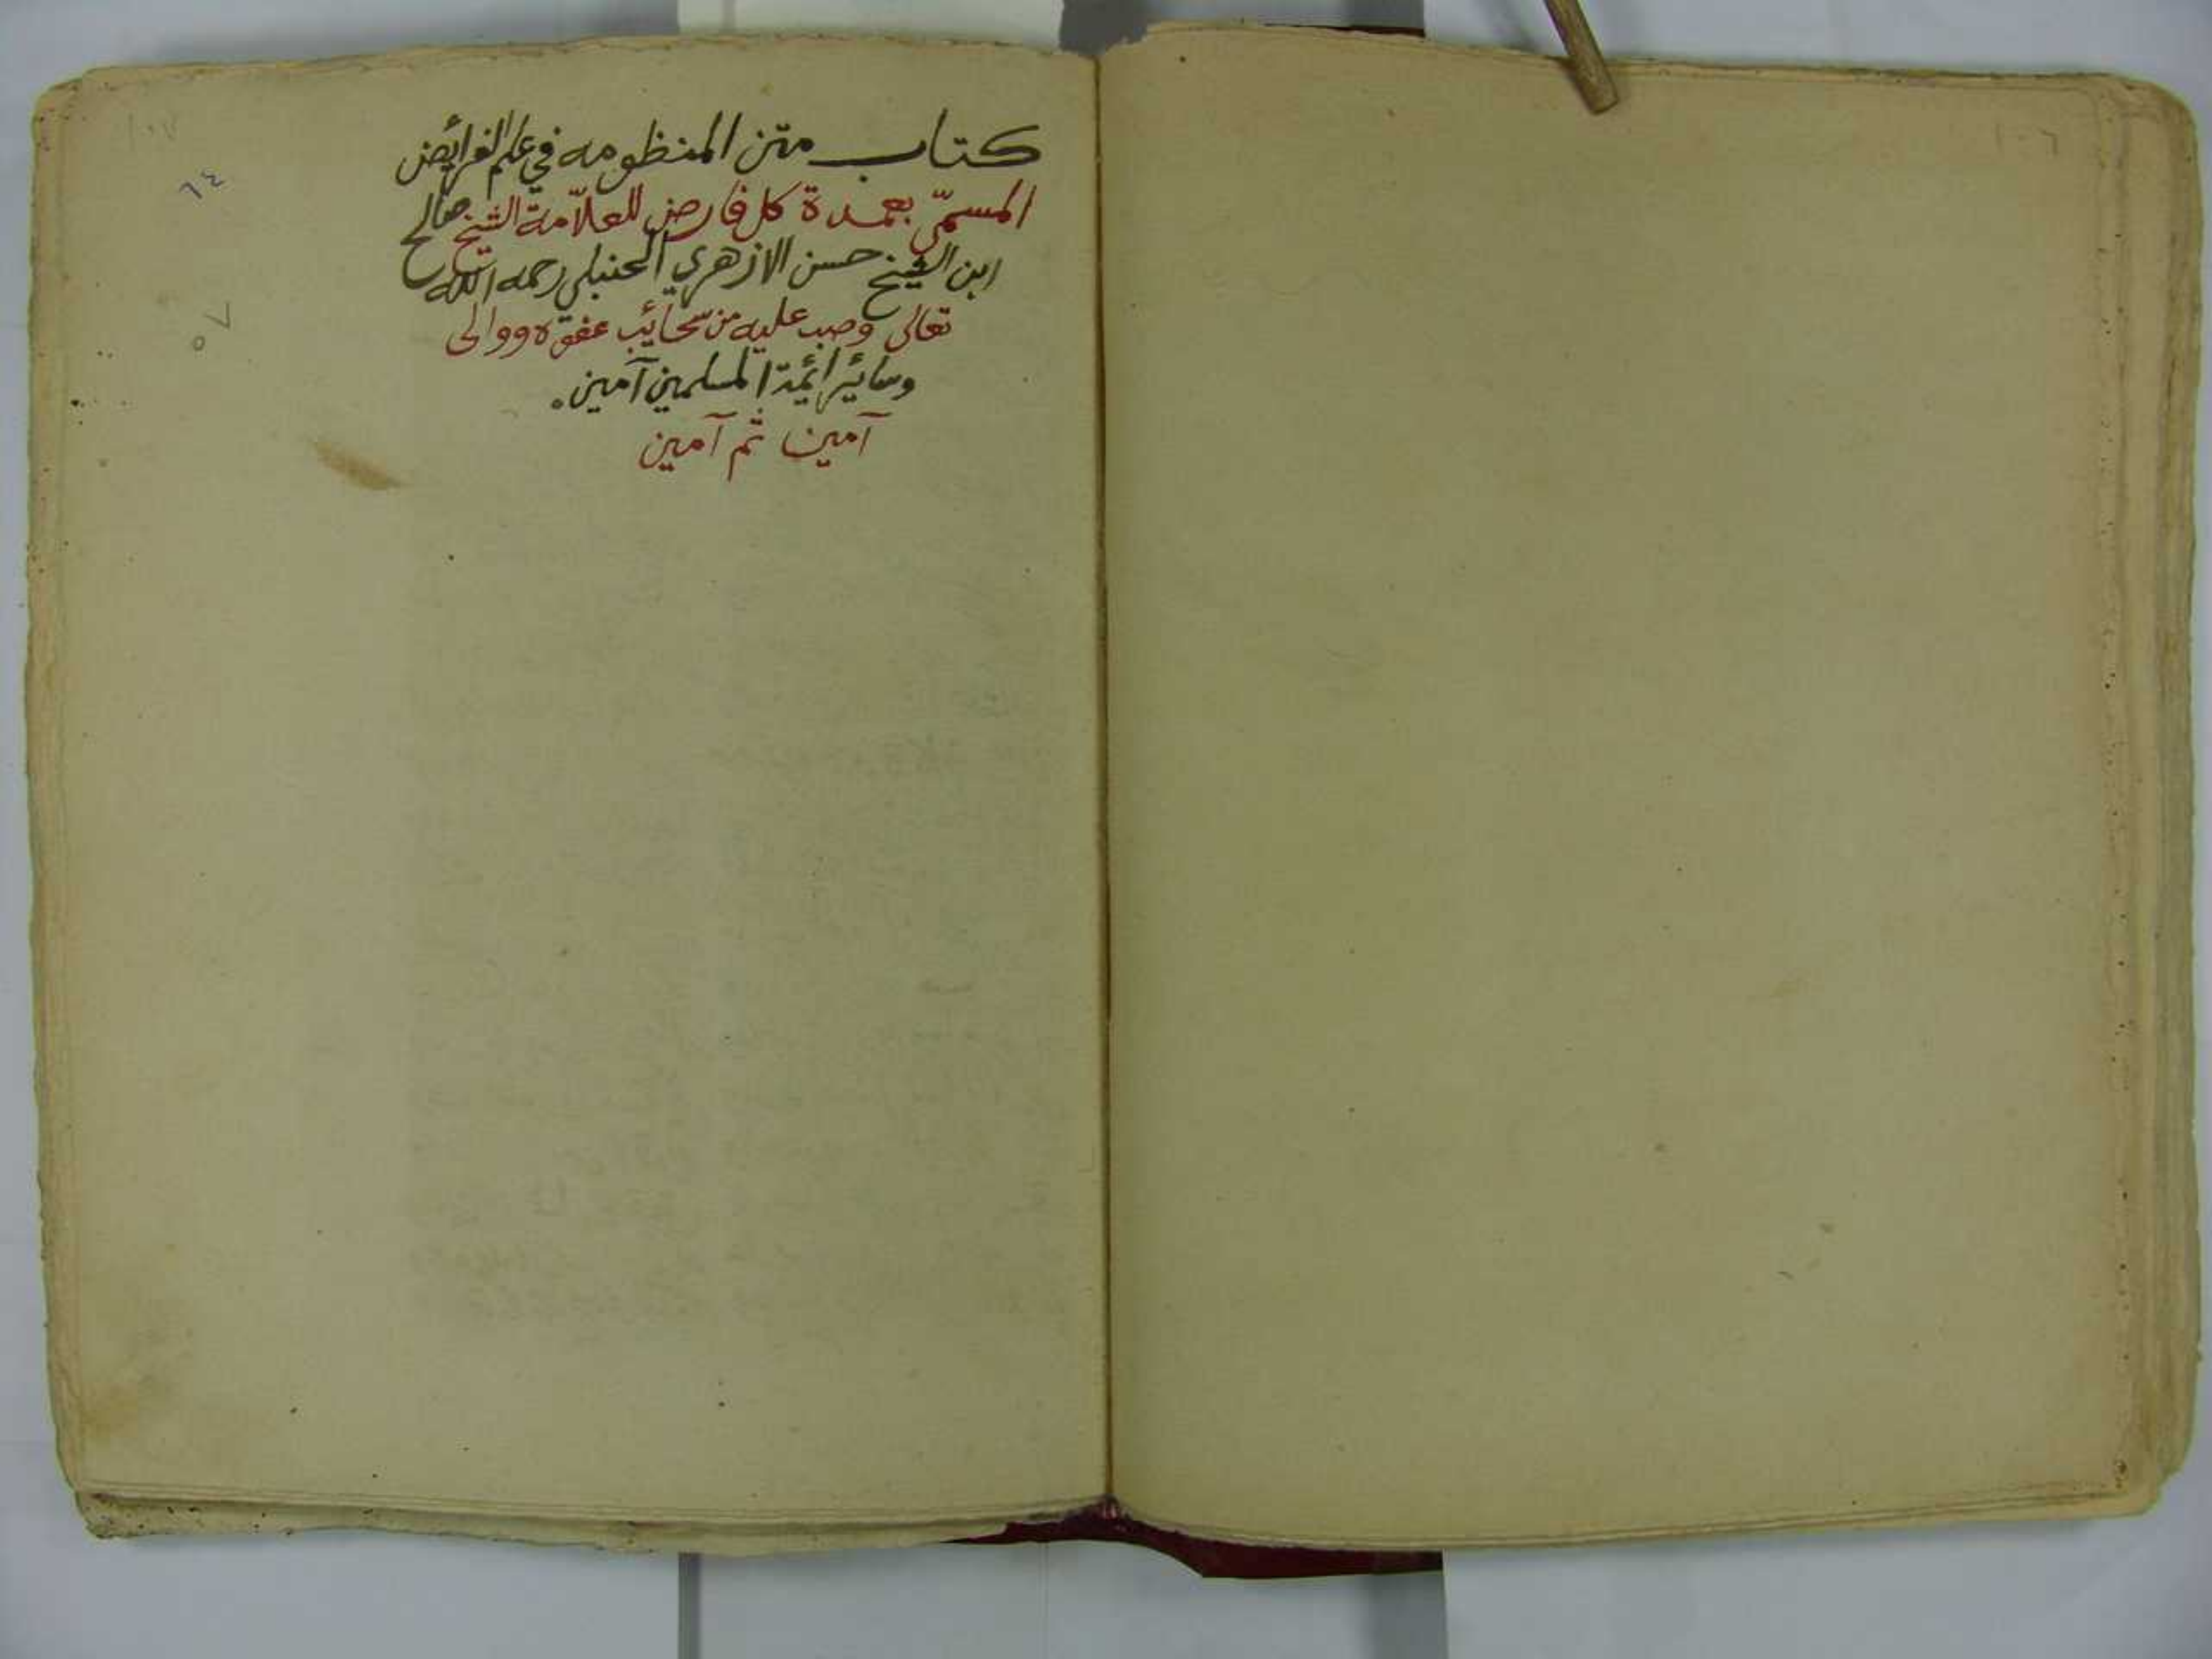 ١٠٦
١٠٧
٦٤
٧٥
كتاب متن المنظومه في علم الفرائض
المسمّى بعمدة كل فارض للعلاّمة الشيخ صالح
ابن الشيخ حسن الازهري الحنبلي رحمه الله
تعالى وصب عليه من سحائب عفوه ووالى
وسائر ائمة المسلمين آمين.
آمين ثم آمين